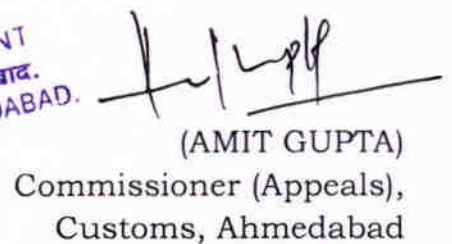 NT
बाद.
DABAD.
(AMIT GUPTA)
Commissioner (Appeals),
Customs, Ahmedabad